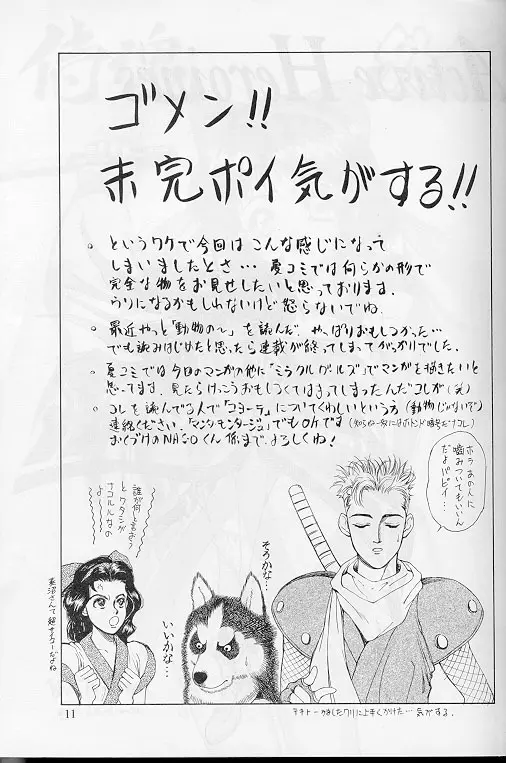 ゴメン!!
未完ポイ気がする!!
。というワケで今回は こんな感じになって
しまいましたとさ… 夏コミでは何らかの形で
完全な物をお見せしたいと思っております.
ウソになるかもしれないけど怒らないでね.
。最近やっと「動物の〜」を読んだ. やっぱりおもしろかった…
でも読みはじめたと思ったら連載が終ってしまってがっかりでした.
。夏コミでは今回のマンガの他に「ミラクルガールズ」でマンガを描きたいと
思ってます. 見たらけっこうおもしろくてはまってしまったんだコレが(笑)
。コレを読んでる人で「コヨーテ」についてくわしいという方(動物じゃないぞ)
連絡ください.
でもOKです
おくづけのNASOくん係まで.よろしくね!
ホラ あの人に
噛みついてもいいん
だよパピィ…
誰が何と言おうと
ワタシが
ナコルルなの
よー
そうかな…
いいかな…
11
気がする.